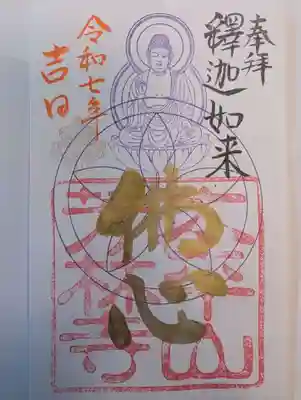 奉拝
釋迦如来
佛心
令和七年
吉日